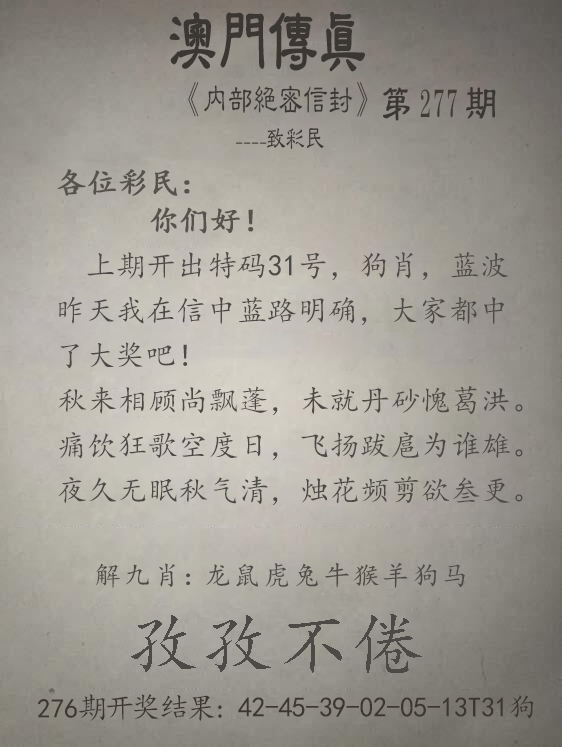 澳門傳眞
《内部絕密信封》第277期
----致彩民
各位彩民：
你们好！
上期开出特码31号，狗肖，蓝波
昨天我在信中蓝路明确，大家都中
了大奖吧！
秋来相顾尚飘蓬，未就丹砂愧葛洪。
痛饮狂歌空度日，飞扬跋扈为谁雄。
夜久无眠秋气清，烛花频剪欲叁更。
解九肖：龙鼠虎兔牛猴羊狗马
孜孜不倦
276期开奖结果：42-45-39-02-05-13T31狗